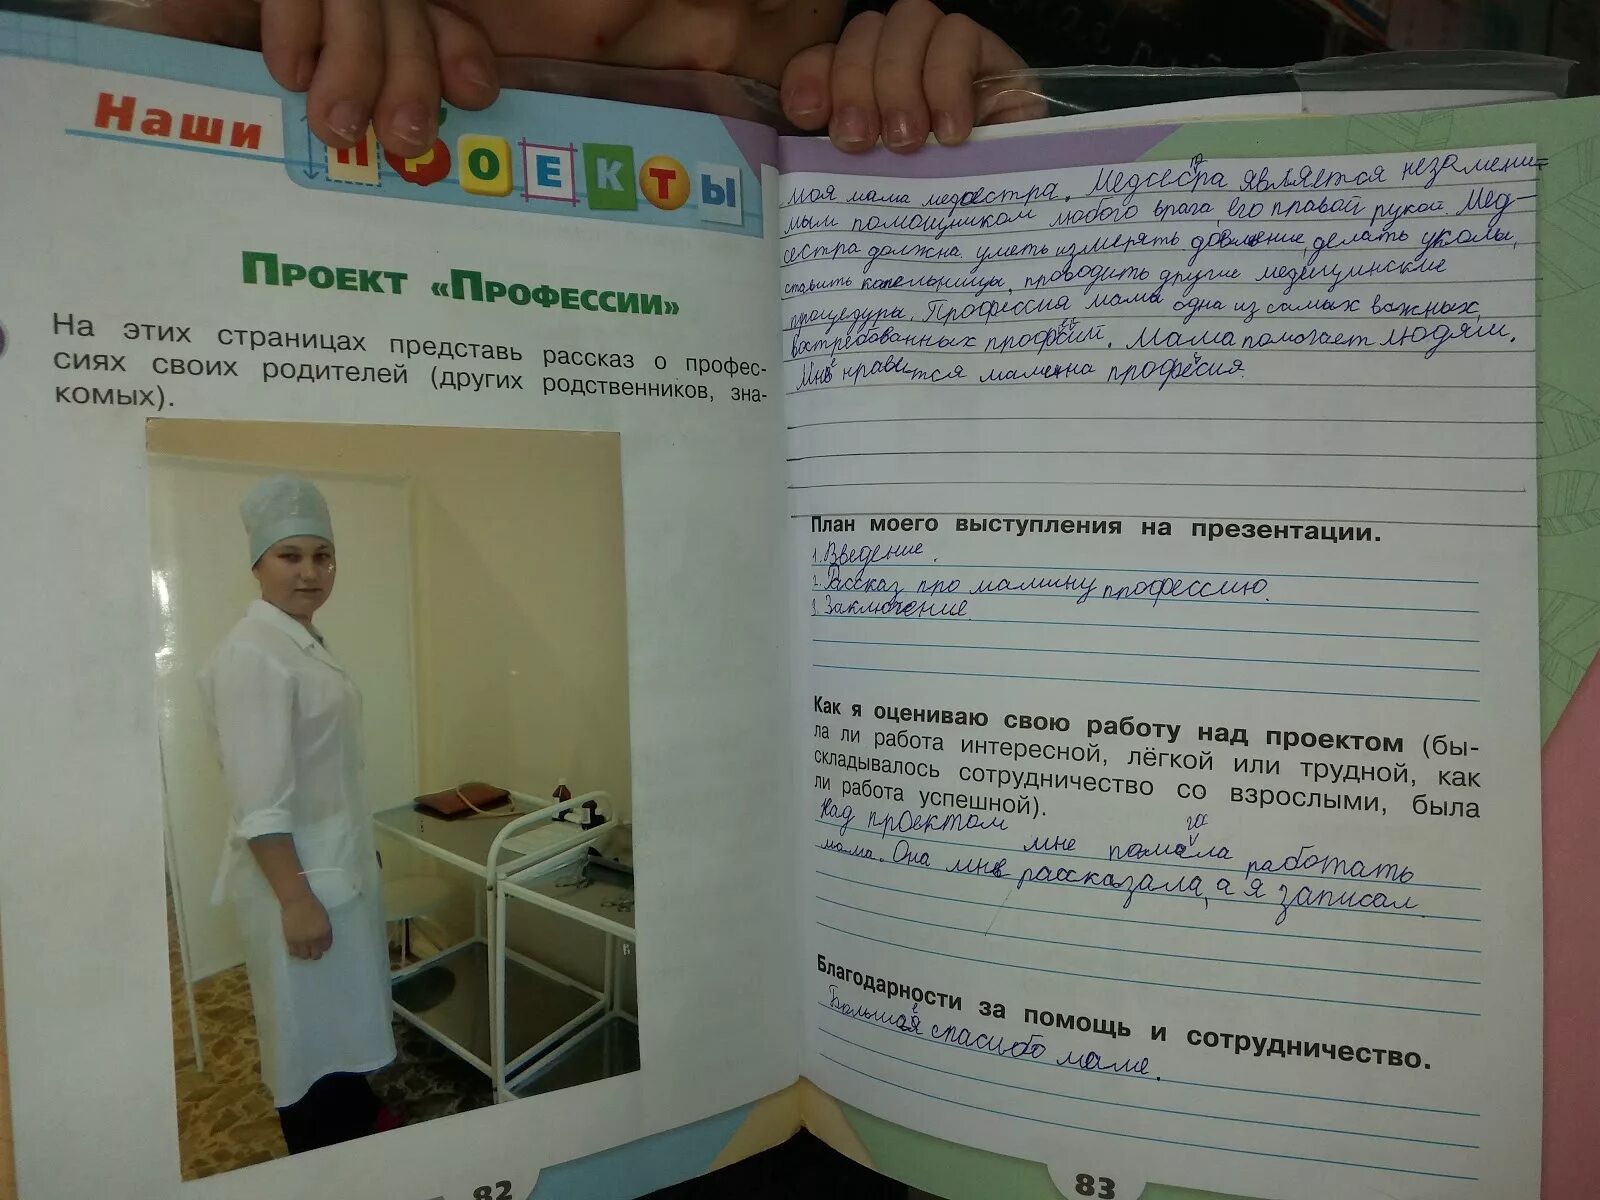 Наши ПРОЕКТЫ
Проект «Профессии»
На этих страницах представь рассказ о профес-
сиях своих родителей (других родственников, зна-
комых).
82
Моя мама медсестра. Медсестра является незамени-
мым помощником любого врача его правой рукой. Мед-
сестра должна уметь измерять давление, делать уколы,
ставить капельницы, проводить другие медицинские
процедуры. Профессия мамы одна из самых важных,
востребованных профессий. Мама помогает людям.
Мне нравится мамина профессия.
План моего выступления на презентации.
1. Введение.
2. Рассказ про мамину профессию.
3. Заключение.
Как я оцениваю свою работу над проектом (бы-
ла ли работа интересной, лёгкой или трудной, как
складывалось сотрудничество со взрослыми, была
ли работа успешной).
Над проектом мне помогала работать
мама. Она мне рассказала, а я записал.
Благодарности за помощь и сотрудничество.
Большое спасибо маме.
83